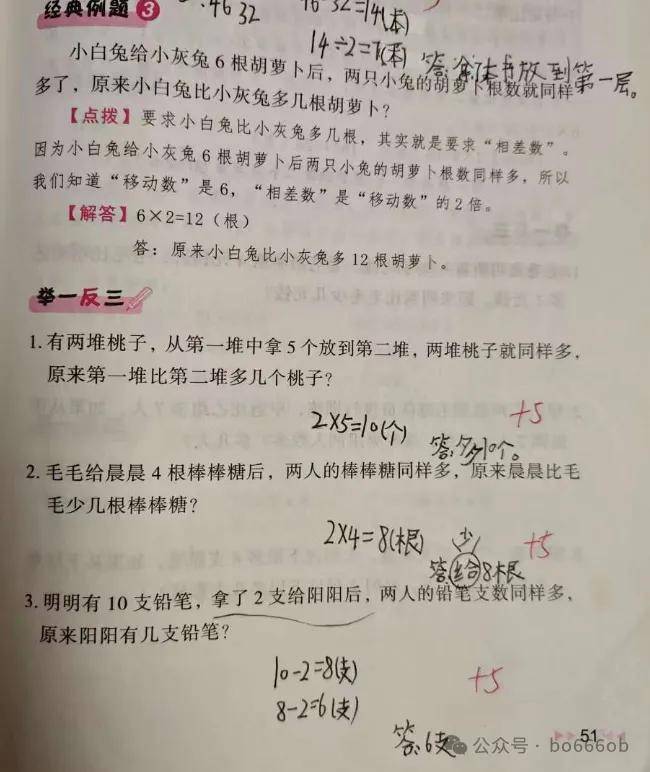 经典例题 3
46 32
46-32=14(本)
14÷2=7(本)
答:拿7本书放到第一层。
小白兔给小灰兔6根胡萝卜后,两只小兔的胡萝卜根数就同样
多了,原来小白兔比小灰兔多几根胡萝卜?
【点拨】要求小白兔比小灰兔多几根,其实就是要求“相差数”。
因为小白兔给小灰兔6根胡萝卜后两只小兔的胡萝卜根数同样多,所以
我们知道“移动数”是6,“相差数”是“移动数”的2倍。
【解答】6×2=12(根)
答:原来小白兔比小灰兔多12根胡萝卜。
举一反三
1. 有两堆桃子,从第一堆中拿5个放到第二堆,两堆桃子就同样多,
原来第一堆比第二堆多几个桃子?
2×5=10(个)
+5
答:多10个。
2. 毛毛给晨晨4根棒棒糖后,两人的棒棒糖同样多,原来晨晨比毛
毛少几根棒棒糖?
2×4=8(根)
少
+5
答:给8根
3. 明明有10支铅笔,拿了2支给阳阳后,两人的铅笔支数同样多,
原来阳阳有几支铅笔?
10-2=8(支)
+5
8-2=6(支)
答:6支
51
公众号·bo666ob